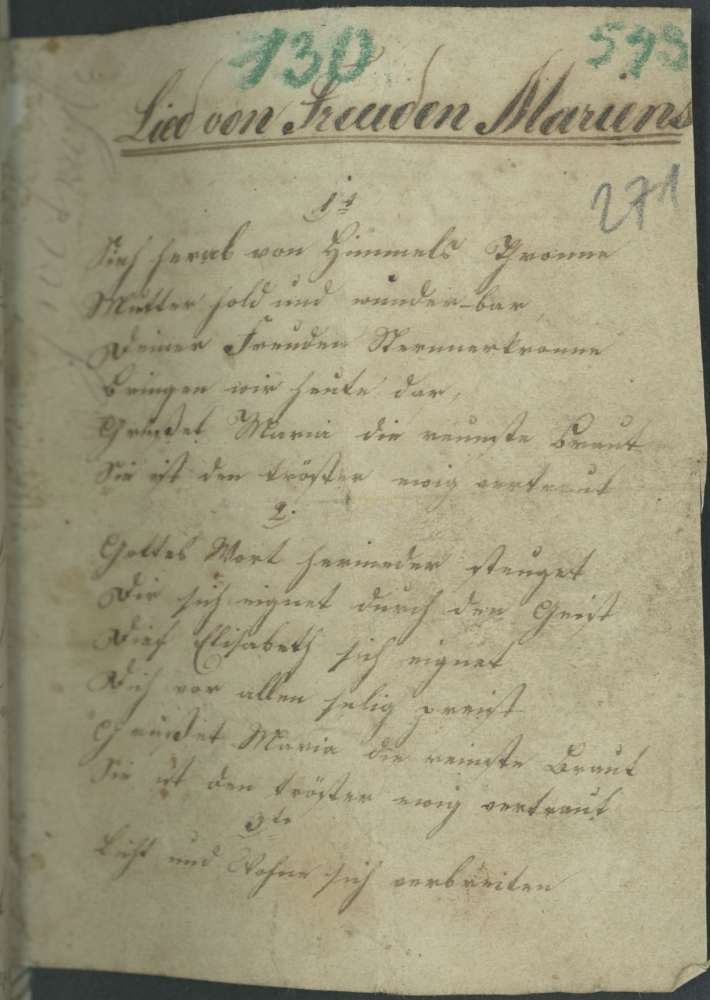 130
593
Lied von Freuden Mariens
271
1t
Sieh herab von Himmels Thronne
Mutter hold und wunder-bar
Deiner Freuden Sternnerkronne
Bringen wir heute dar,
Grüßet Maria die reunste Braut
Sie ist den tröster ewig vertraut
2.
Gottes Wort hernieder steuget
Dir sich eignet durch den Geist
Dief Elisabeth sich eignet
Dich vor allen selig preist
Grüßet Maria die reinste Braut
Sie ist den tröster ewig vertraut
3te
Licht und Wohne sich verbreiten